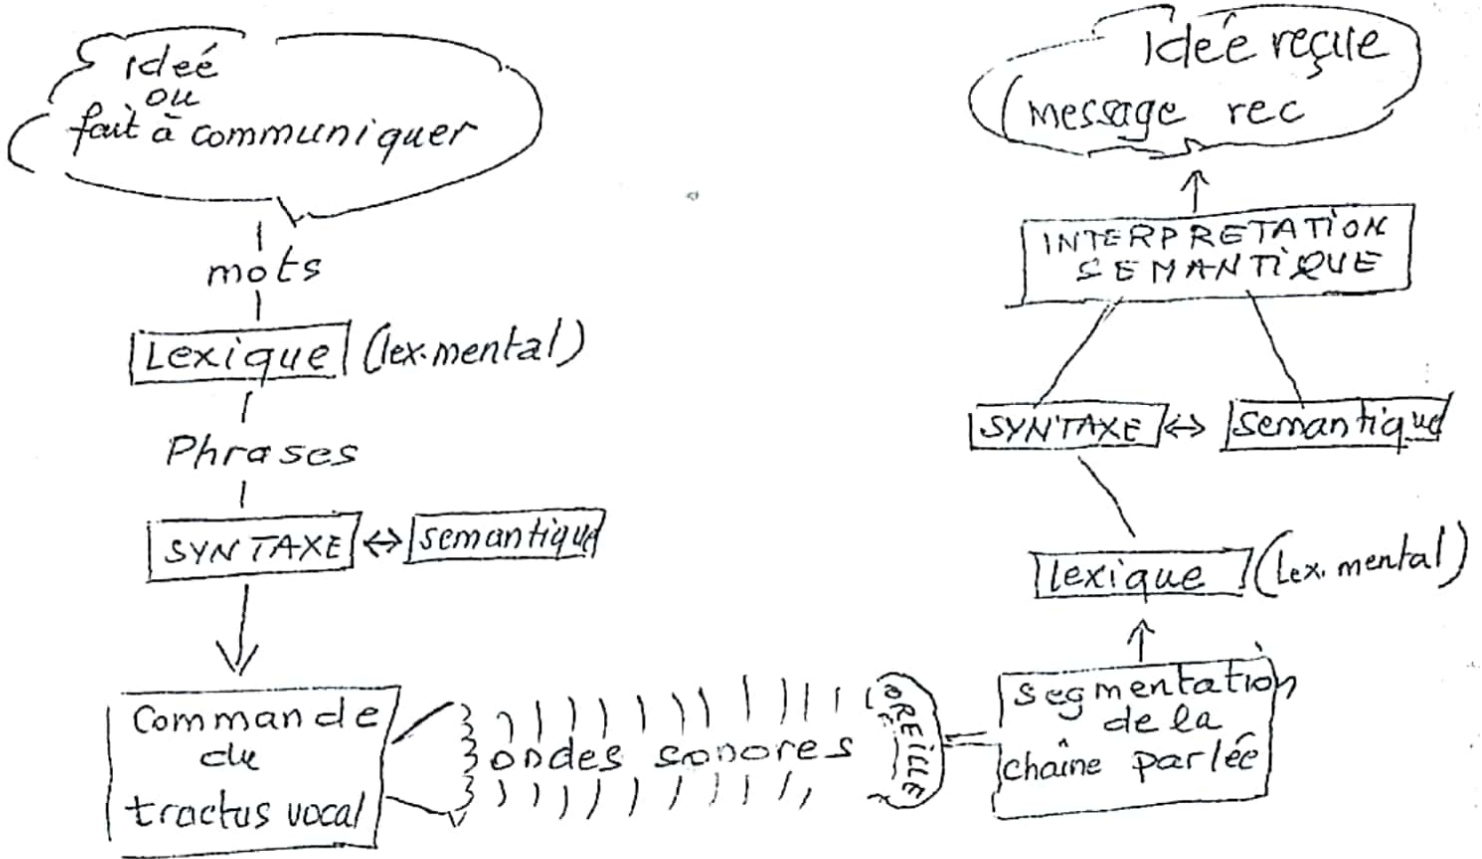 ideé
ou
fait à communiquer
mots
Lexique (lex.mental)
Phrases
SYNTAXE ↔ semantique
Commande
du
tractus vocal
ondes sonores
OREILLE
segmentation
de la
chaîne parlée
lexique (Lex. mental)
SYNTAXE ↔ semantique
INTERPRETATION
SEMANTIQUE
Idée reçue
(message rec